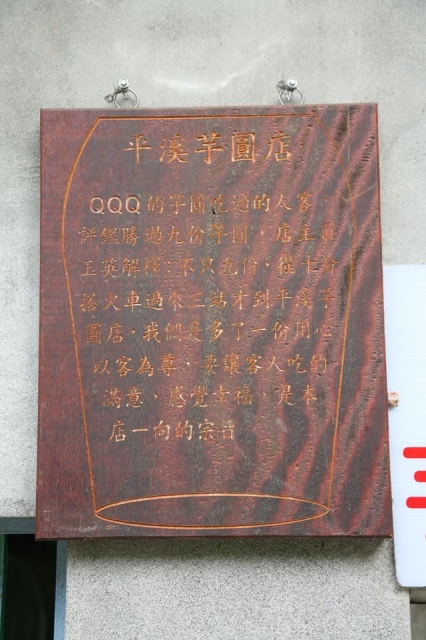 平溪芋圓店
QQQ的芋圓吃過的人客
評鑑勝過九份芋圓，店主
玉英解釋：不只九份，從十分
搭火車過來三站才到平溪芋
圓店，我們是多了一份用心
以客為尊，要讓客人吃的
滿意，感覺幸福，是本
店一向的宗旨